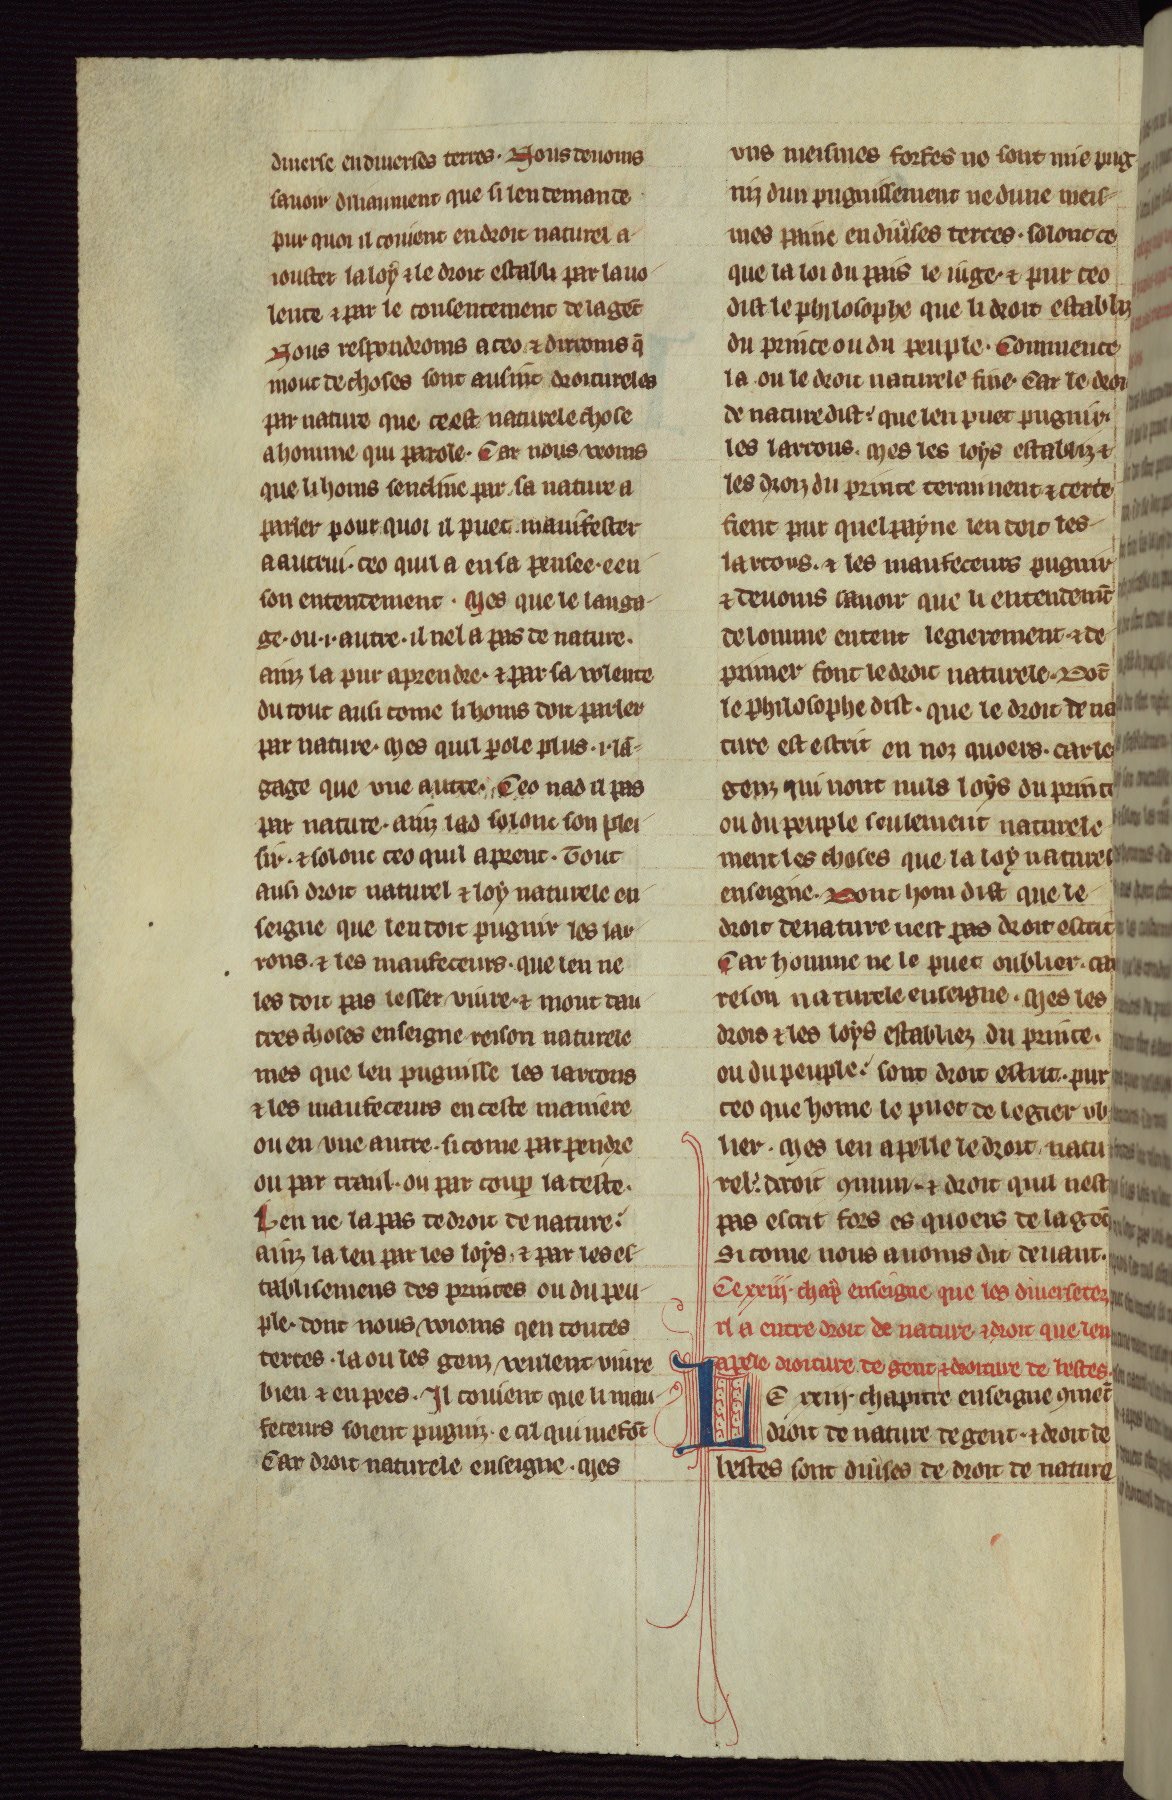 diuerse en diuerses terres. Nous deuoms
sauoir diuaument que si len demande
pur quoi il couient en droit naturel a
iouster la loy ⁊ le droit establi par la uo
lente ⁊ par le consentement de la gēt
Nous respondroms a ceo ⁊ dirroms q̄
mout de choses sont ausint droitureles
par nature que ceest naturele chose
a homme qui parole. Car nous veoms
que li homs sencline par sa nature a
parler pour quoi il puet manifester
a autrui. ceo quil a en sa pensee. e en
son entendement. Mes que le langa
ge. ou .i. autre. il nel a pas de nature.
ainz la pur aprendre. ⁊ par sa volente
du tout ausi come li homs doit parler
par nature. Mes quil ꝑole plus .i. lā
gage que vne autre. Ceo nad il pas
par nature. ainz lad solonc son plei
sir. ⁊ solonc ceo quil aprent. Tout
ausi droit naturel ⁊ loy naturele en
seigne que len doit pugnir les lar
rons. ⁊ les maufeceurs. que len ne
les doit pas lesser viure. ⁊ mout dau
tres choses enseigne reison naturele
mes que len pugnisse les larrons
⁊ les maufeceurs en ceste maniere
ou en vne autre. si come par pendre
ou par traul. ou par coup la teste.
Len ne la pas de droit de nature.
ainz la len par les loys. ⁊ par les es
tablisemens des princes ou du peu
ple. dont nous voioms qen toutes
terres. la ou les genz veulent viure
bien ⁊ en pes. Il couient que li mau
feceurs soient pugniz. e cil qui mefōt
Car droit naturele enseigne. Mes
vns meismes forfes ne sont mie pug
niz dun pugnissement ne dune meis
mes paine en diu̾ses terres. solonc ce
que la loi du pais le iuge. ⁊ pur ceo
dist le philosophe que li droit establiz
du prince ou du peuple. Commence
la ou le droit naturele fine. Car le droi
de nature dist. que len puet pugnir.
les larrons. Mes les loys establiz ⁊
les droiz du prince terminent ⁊ certe
fient pur quel payne len doit les
larrons. ⁊ les maufeceurs pugnir
⁊ deuoms sauoir que li entendemēt
de lomme entent legierement ⁊ de
primer font le droit naturele. Dōt
le philosophe dist. que le droit de na
ture est escrit en noz quoers. car le
genz qui nont nuls loys du prince
ou du peuple seulement naturele
ment les choses que la loy naturel
enseigne. Dont hom dist que le
droit de nature nest pas droit escrit
Car homme ne le puet oublier. car
reson naturele enseigne. Mes les
drois ⁊ les loys establiez du prince.
ou du peuple. sont droit escrit. pur
ceo que home le puet de legier ob
lier. Mes len apelle le droit natu
rel. droit ꝯmun. ⁊ droit quil nest
pas escrit fors es quoers de la gēt
Si come nous auoms dit deuant.
Ce xxiij. chap̄ enseigne que les diuersetez
il a entre droit de nature ⁊ droit que len
apele droiture de gent ⁊ droiture de bestes.
LE xxiij. chapitre enseigne ꝯmēt
droit de nature de gent. ⁊ droit de
bestes sont diu̾ses de droit de nature